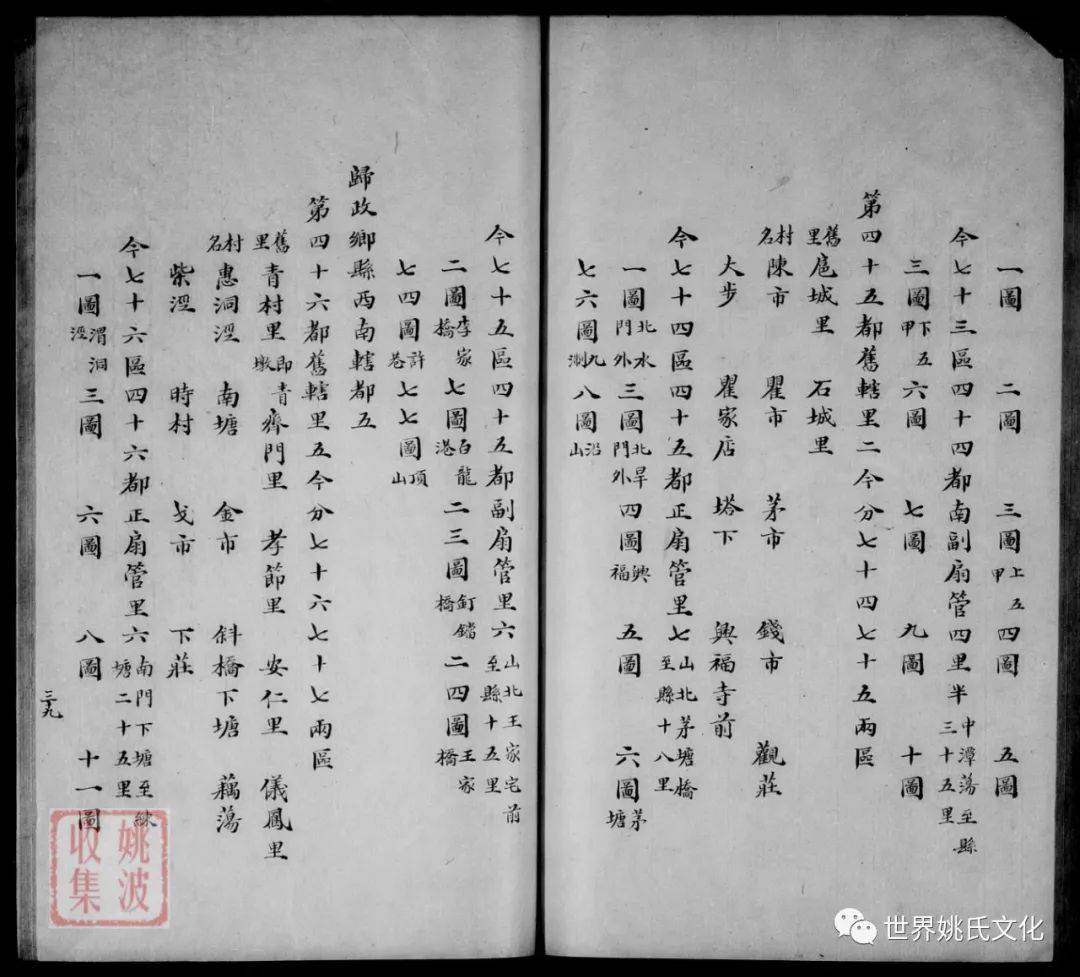 一圖 二圖 三圖上五甲 四圖 五圖
今七十三區四十四都南副扇管四里半中漳蕩至縣三十五里
三圖下五甲 六圖 七圖 九圖 十圖
第四十五都舊轄里二今分七十四七十五兩區
舊里 扈城里 石城里
村名 陳市 瞿市 茅市 錢市 觀莊
大步 瞿家店 塔下 興福寺前
今七十四區四十五都正扇管里七山北茅塘橋至縣十八里
一圖北水門外 三圖北旱門外 四圖興福 五圖 六圖茅塘
七六圖九涮 八圖沿山
今七十五區四十五都副扇管里六山北王家宅前至縣十五里
二圖李家橋 七圖白龍港 二三圖釘鐺橋 二四圖王家橋
七四圖許巷 七七圖頂山
歸政鄉縣西南轄都五
第四十六都舊轄里五今分七十六七十七兩區
舊里 青村里即青墩 齊門里 孝節里 安仁里 儀鳳里
村名 惠洞涇 南塘 金市 斜橋下塘 藕蕩
柴涇 時村 戈市 下莊
今七十六區四十六都正扇管里六南門下塘至練塘二十五里
一圖渭洞涇 三圖 六圖 八圖 十一圖
三九
姚波收集
世界姚氏文化